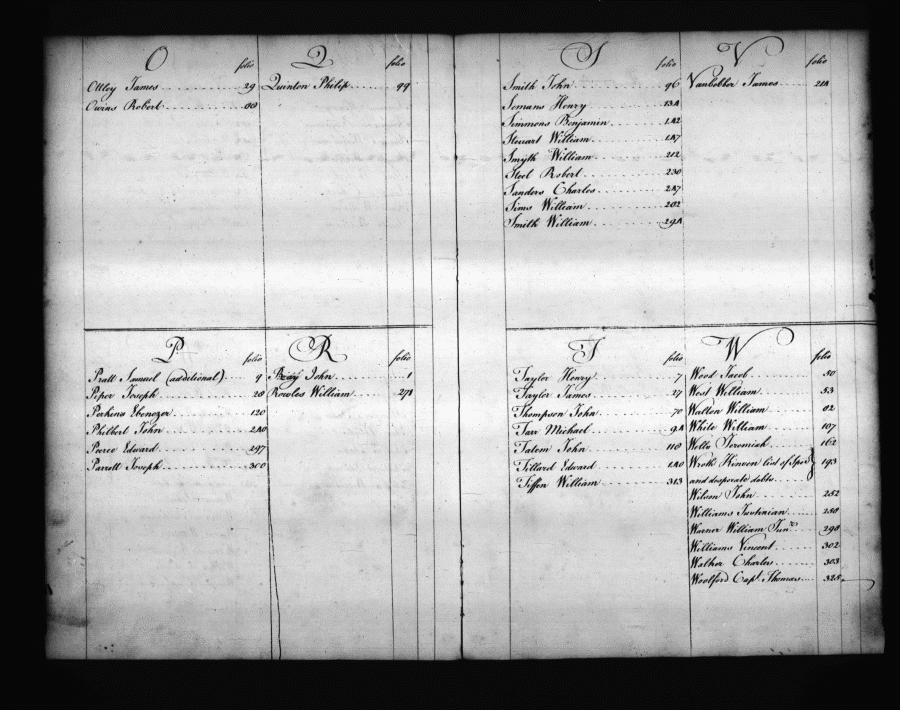 O folio
Ottley James 29
Owins Robert
Q folio
Quinton Philip 99
P folio
Pratt Samuel (additional) 9
Piper Joseph 28
Perkins Ebenezer 120
Philbert John 240
Pierce Edward 297
Parrott Joseph 300
R folio
John 1
Rowles William 278
S folio
Smith John 96
Semans Henry 134
Simmons Benjamin 142
Steuart William 147
Smyth William 212
Steel Robert 230
Sanders Charles 247
Sims William 282
Smith William 294
V folio
Vanbebber James 214
T folio
Taylor Henry 7
Taylor James 27
Thompson John 70
Tarr Michael 94
Tatem John 118
Tillard Edward 140
Tiffen William 313
W folio
Wood Jacob 50
West William 53
Wallen William 82
White William 107
Wells Jeremiah 162
Wroth Kinven list of Sper 193
and desperate debts
Wilson John 252
Williams Justinian 258
Warner William Junr 298
Williams Vincent 302
Walker Charles 303
Woolford Capt. Thomas 325